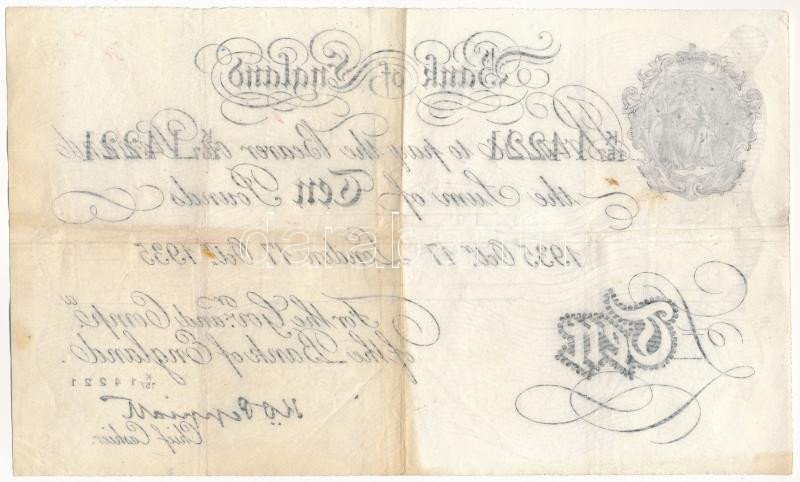 Bank of England
K/157 14221 to pay the Bearer on Demand K/157 14221
the Sum of Ten Pounds
1935 Octr. 17 London 17 Octr. 1935
For the Govr. and Compa.
of the Bank of England.
Ten
K/157 14221
Chief Cashier.
darabanth.com